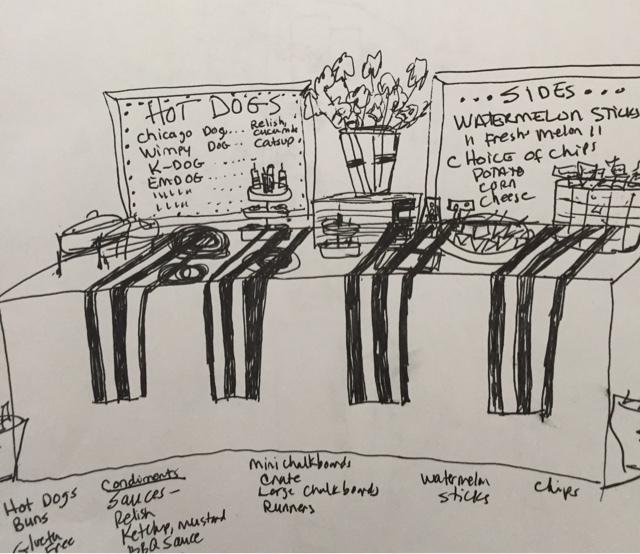 HOT DOGS
Chicago Dog....
Wimpy Dog...
K-DOG
EMDOG
Relish,
cucumbe
Catsup
...SIDES...
WATERMELON STICKS
" Fresh melon "
CHOICE OF CHIPS
POTATO
CORN
Cheese
Hot Dogs
Buns
Gluten
Free
Condiments
Sauces-
Relish
Ketchup, mustard
BBQ Sauce
mini chalkboards
Crate
Large Chalkboards
Runners
Watermelon
Sticks
Chips